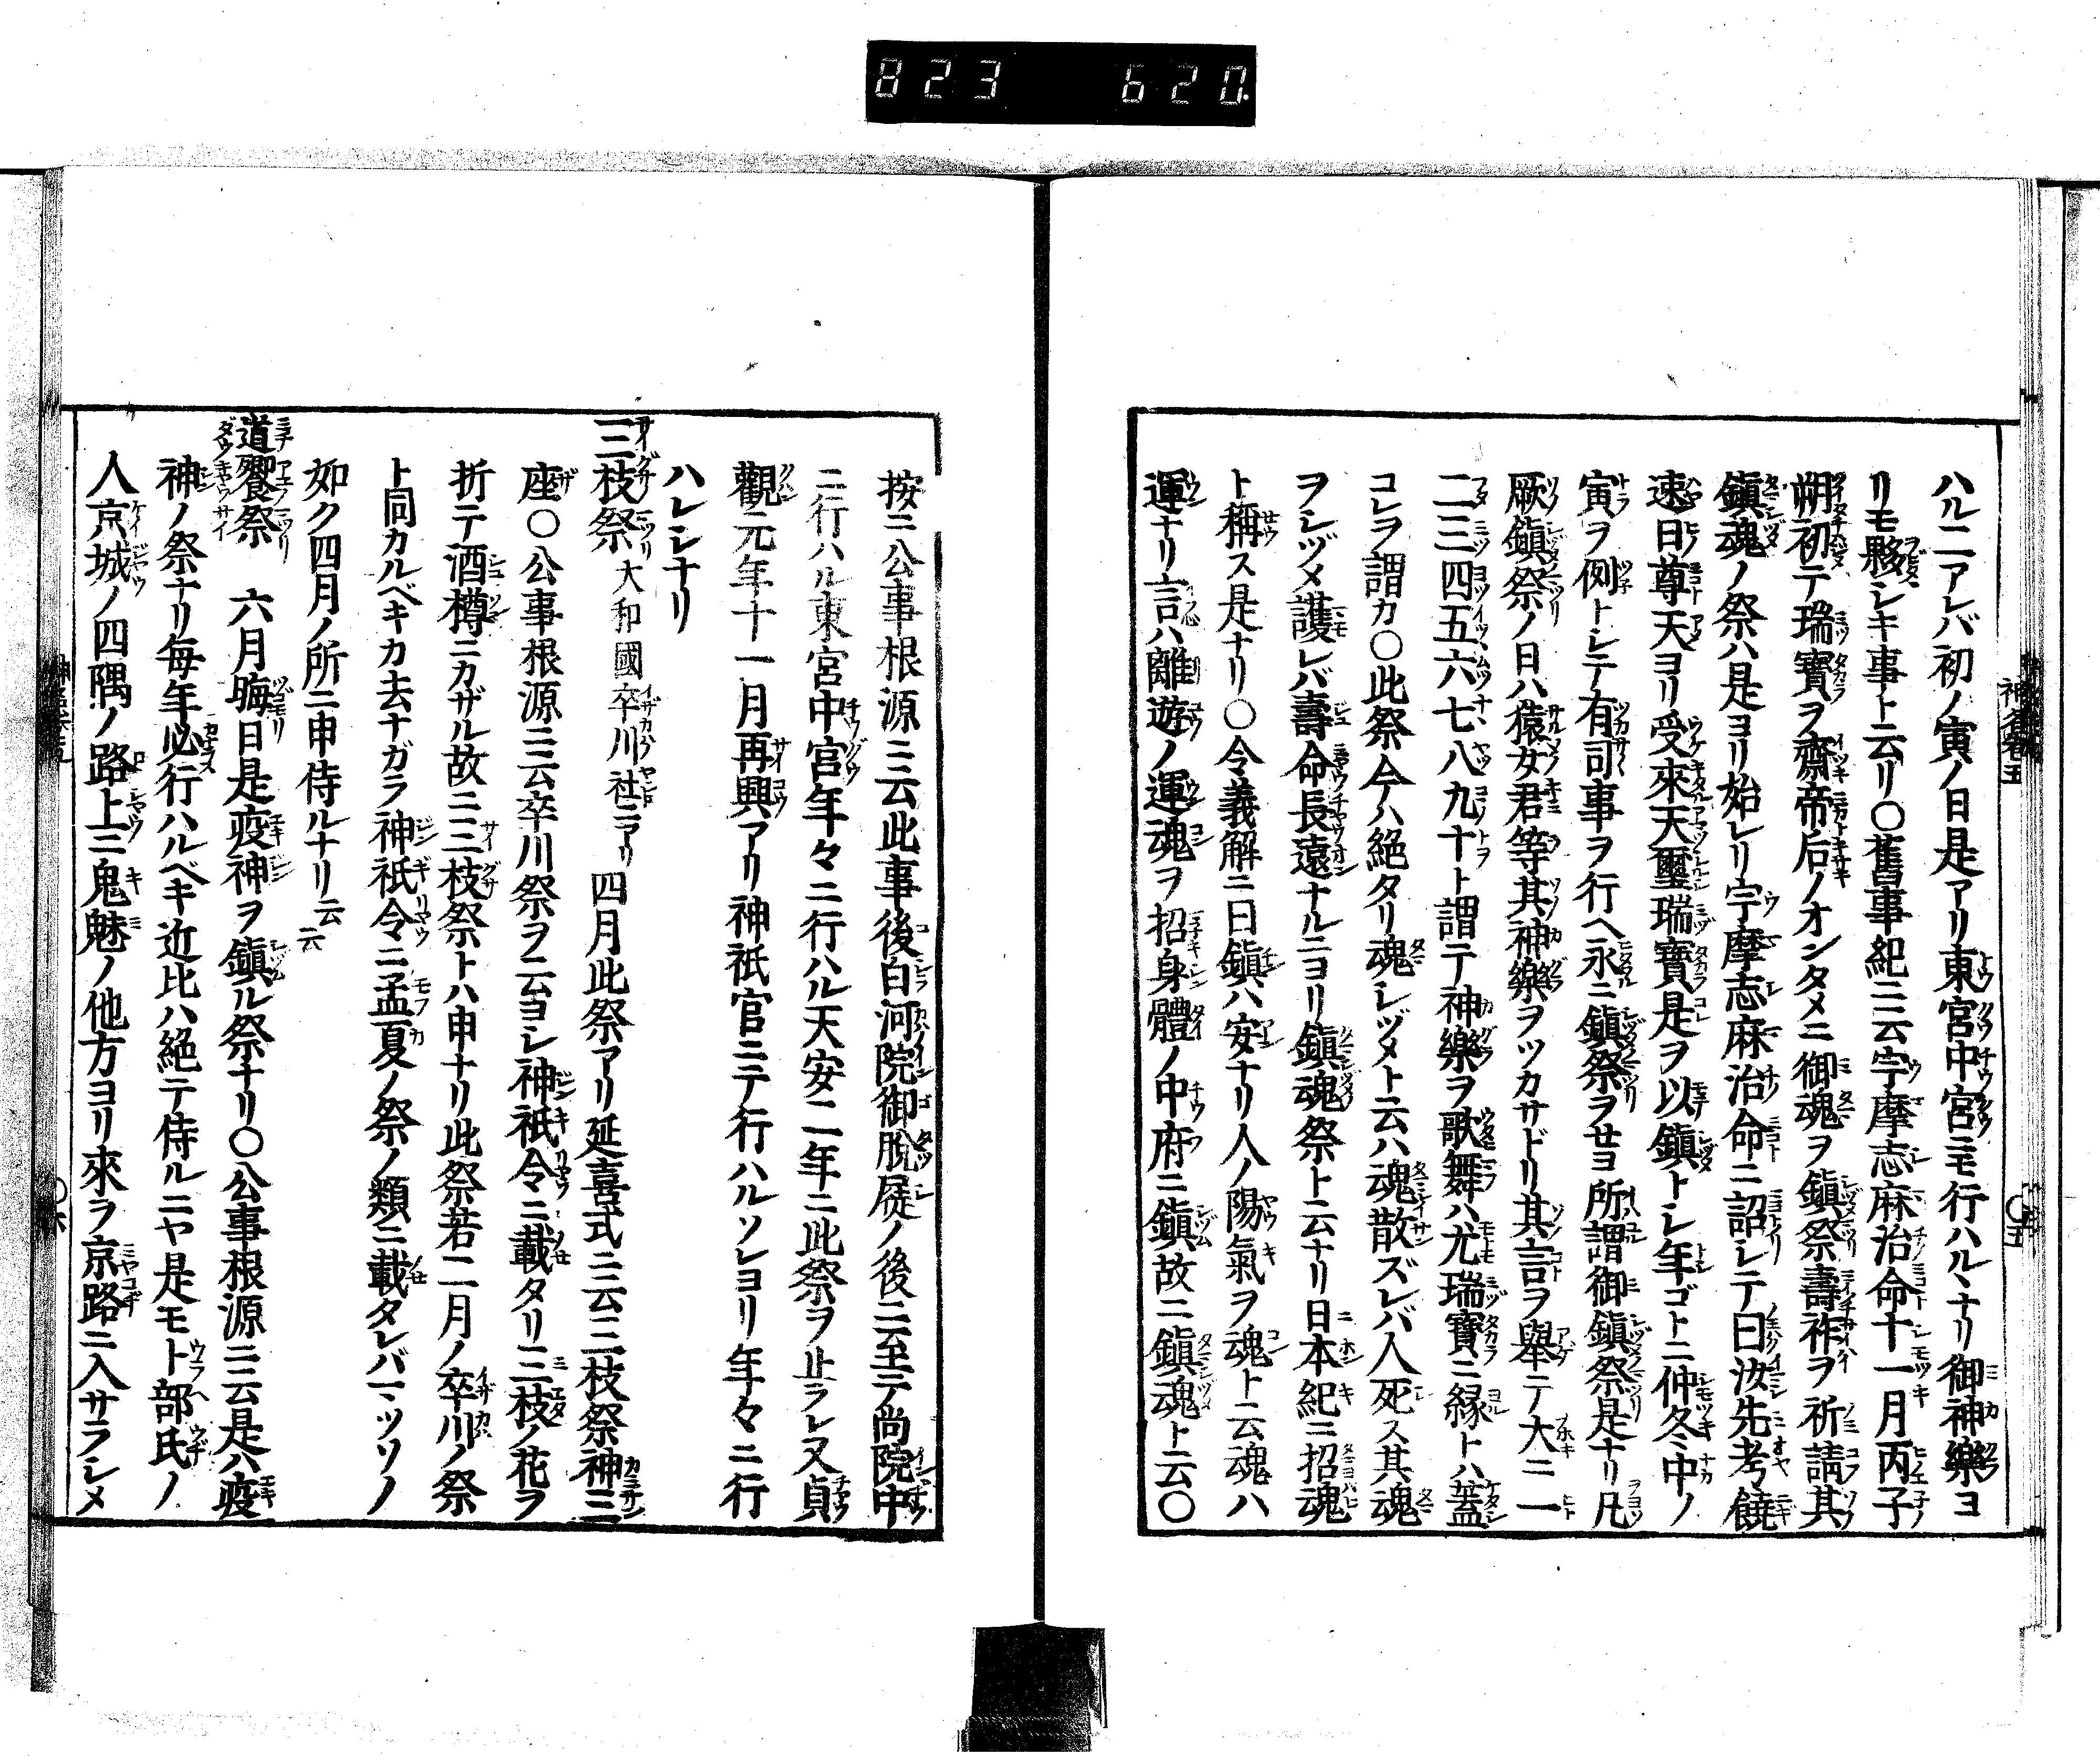 823 620.
ハルニアレバ初ノ寅ノ日是アリ東宮中宮ニモ行ハルヽナリ御神樂ヨ
リモ夥シキ事ト云リ〇舊事紀ニ云宇摩志麻治命十一月丙子
朔初テ瑞寶ヲ齋帝后ノオンタメニ御魂ヲ鎭祭壽祚ヲ祈請其
鎭魂ノ祭ハ是ヨリ始レリ宇摩志麻治命ニ詔シテ曰汝先考饒
速日尊天ヨリ受來天璽瑞寶是ヲ以鎭トシ年ゴトニ仲冬ヽ中ノ
寅ヲ例トシテ有司事ヲ行ヘ永ニ鎭祭ヲセヨ所謂御鎭祭是ナリ凡
厥鎭祭ノ日ハ猿女君等其神樂ヲツカサドリ其言ヲ擧テ大ニ一
二三四五六七八九十ト謂テ神樂ヲ歌舞ハ尤瑞寶ニ縁トハ蓋
コレヲ謂カ〇此祭今ハ絶タリ魂シヅメト云ハ魂散ズレバ人死ス其魂
ヲシヅメ護レバ壽命長遠ナルニヨリ鎭魂祭ト云ナリ日本紀ニ招魂
ト稱ス是ナリ〇令義解ニ曰鎭ハ安ナリ人ノ陽氣ヲ魂ト云魂ハ
運ナリ言ハ離遊ノ運魂ヲ招身體ノ中府ニ鎭故ニ鎭魂ト云〇
按ニ公事根源ニ云此事後白河院御脱屣ノ後ニ至テ尚院中
ニ行ハル東宮中宮年々ニ行ハル天安二年ニ此祭ヲ止ラレ又貞
觀元年十一月再興アリ神祇官ニテ行ハルソレヨリ年々ニ行
ハレシナリ
三枝祭 大和國卒川社ニアリ 四月此祭アリ延喜式ニ云三枝祭神三
座〇公事根源ニ云卒川祭ヲ云ヨシ神祇令ニ載タリ三枝ノ花ヲ
折テ酒樽ニカザル故ニ三枝祭トハ申ナリ此祭若二月ノ卒川ノ祭
ト同カルベキカ去ナガラ神祇令ニ孟夏ノ祭ノ類ニ載タレバマヅソノ
如ク四月ノ所ニ申侍ルナリ云云
道饗祭 六月晦日是疫神ヲ鎭ル祭ナリ〇公事根源ニ云是ハ疫
神ノ祭ナリ毎年必行ハルベキ近比ハ絶テ侍ルニヤ是モト部氏ノ
人京城ノ四隅ノ路上ニ鬼魅ノ他方ヨリ來ラ京路ニ入サラシメ